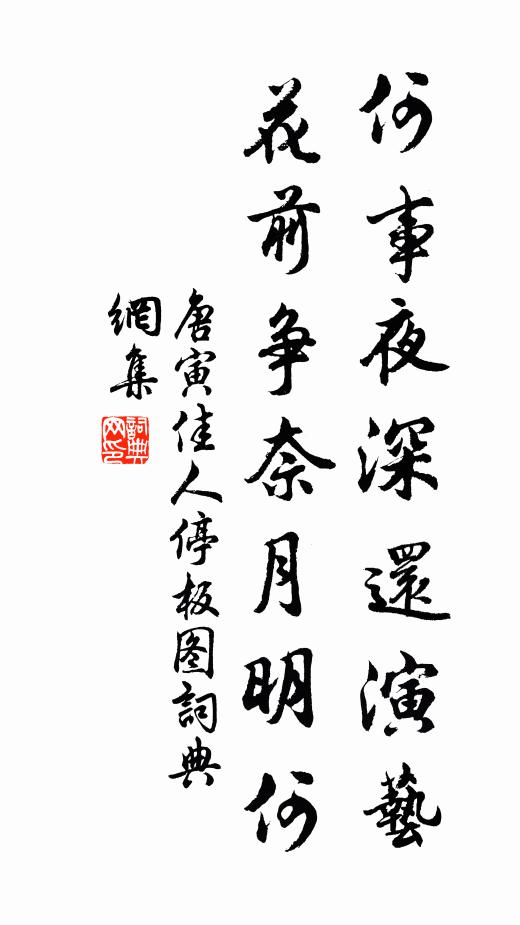 何事夜深還演藝
花前争奈月明何
唐寅佳人停板图詞典
網集
詞典网印